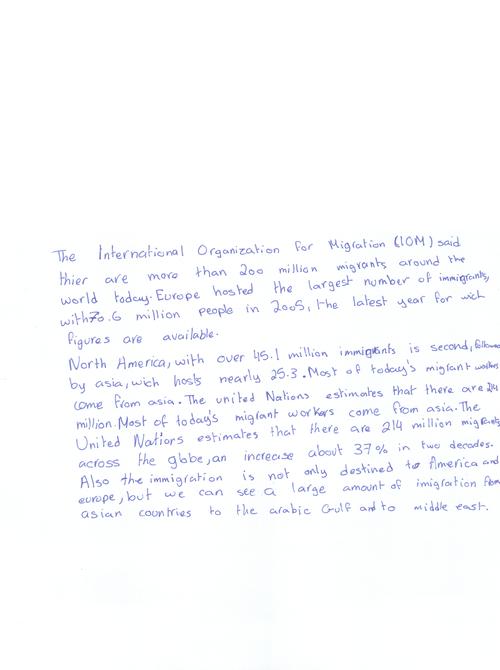 The International Organization for Migration (IOM) said
thier are more than 200 million migrants around the
world today. Europe hosted the largest number of immigrants,
with 70.6 million people in 2005, the latest year for wich
figures are available.
North America, with over 45.1 million immigrants is second, followed
by asia, wich hosts nearly 25.3. Most of today's migrant workers
come from asia. The united Nations estimates that there are 214
million. Most of today's migrant workers come from asia. The
United Nations estimates that there are 214 million migrants
across the globe, an increase about 37% in two decades.
Also the immigration is not only destined to America and
europe, but we can see a large amount of imigration from
asian countries to the arabic Gulf and to middle east.